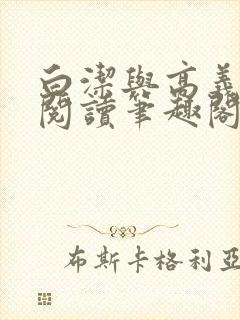 白潔與高義
閱讀筆趣閣
布斯卡格利亞